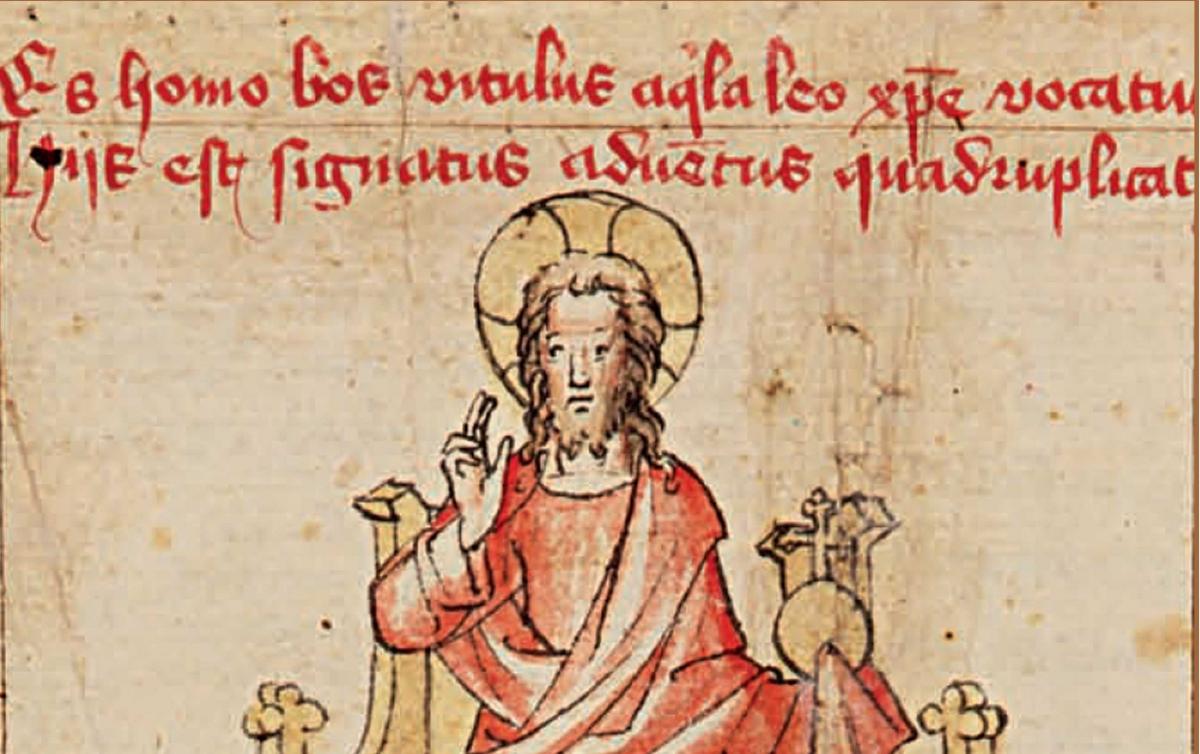 Es homo bos vitulus aq̍la leo xp̄e vocatu
Hijs est signatus aduētus quadruplicat